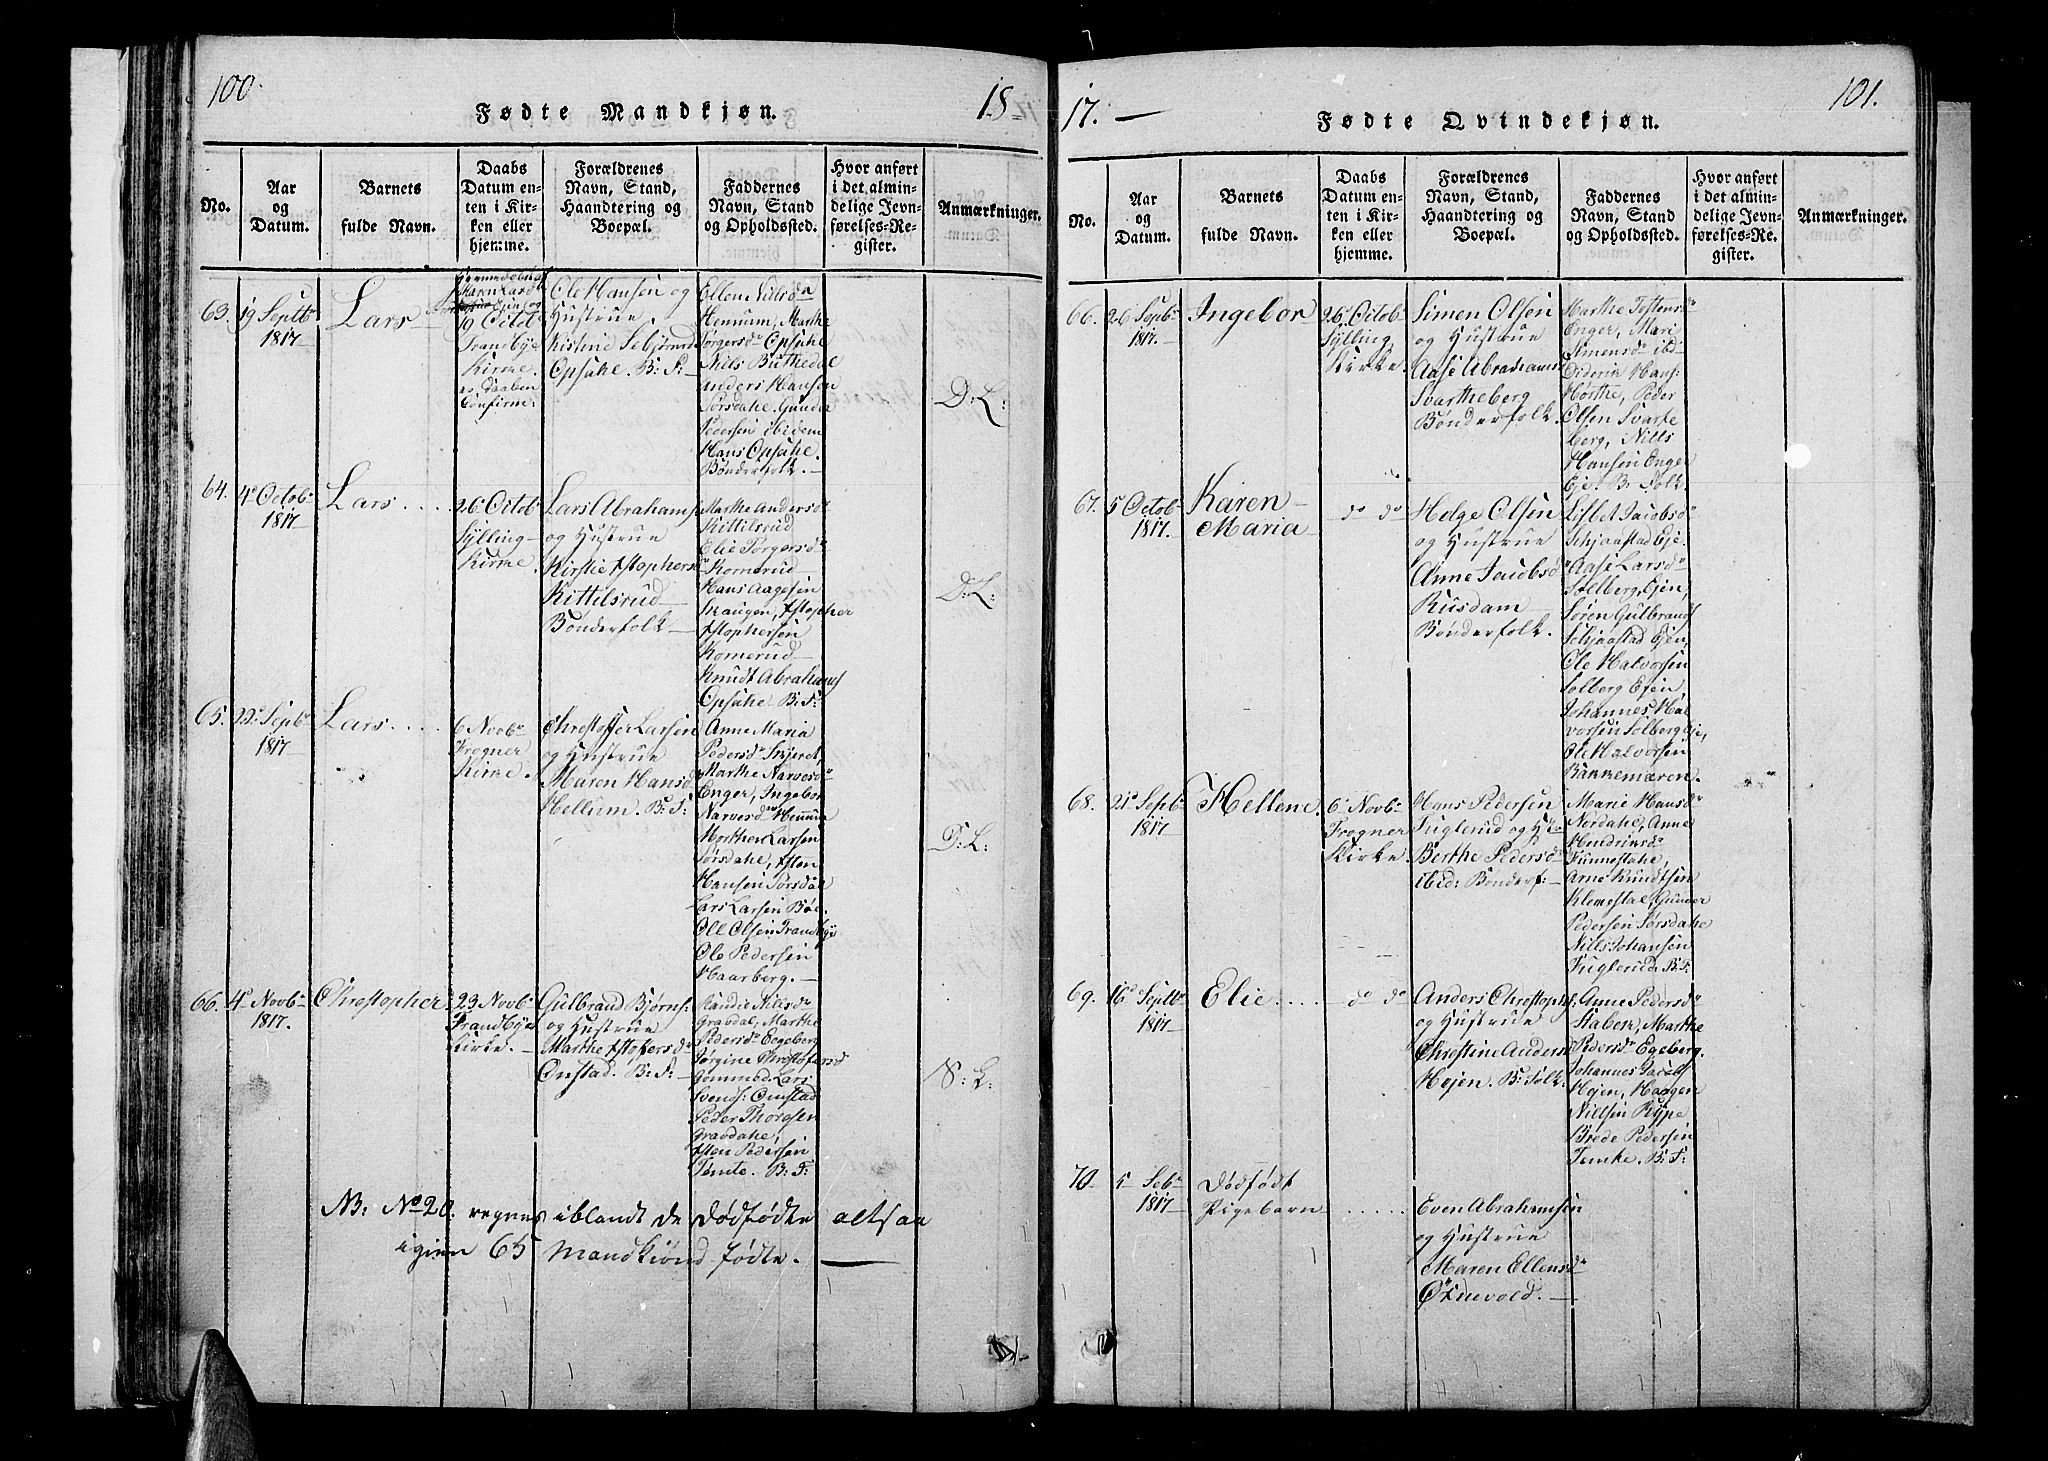 100.
18
Fødte Mandkjøn.
No.
Aar
og
Datum.
Barnets
fulde Navn.
Daabs
Datum en-
ten i Kir-
ken eller
hjemme.
Forældrenes
Navn, Stand,
Haandtering og
Boepæl.
Faddernes
Navn, Stand
og Opholdssted.
Hvor anført
i det almin-
delige Jevn-
førelses-Re-
gister.
Anmærkninger.
63.
19 Septbr
1817
Lars
19 Octob
Trandbye
Kirke.
er Daaben
Confirm:
Ole Hansen og
Hustrue
Opsahe. B: F:
Ellen Nillsdr
Hennum, Marthe
Torgersdr Opsahe
Nils
Anders Hansen
Sørsdahe. Gunder
Pedersen ibidem
Hans Opsahe
Bønderfolk.
D: L:
64.
4 Octobr
1817
Lars
26 Octob
Sylling
Kirke.
Lars Abrahams
og Hustrue
Kirstie Xstophers
Kittilsrud
Bønderfolk
Marthe Andersdr
Kittilsrud
Elie Torgersdr
Komerud
Hans Aagesen
Skaugen, Xstopher
Xstophersen
Komerud
Knudt Abrahams
Opsahe B: F:
D: L:
65.
22 Sepbr
1817
Lars
6 Novbr
Frogner
Kirke.
Chrestoffer Larsen
og Hustrue
Maren Hansd
Hellum. B: F:
Anne Maria
Pedersdr Skjeret,
Marthe Narvesdr
Enger, Ingebor
Narvesd Hennum
Morthen Larsen
Sørsdahe, Xsten
Hansen Sørsdal
Lars Larsen Bøe.
Oll Olsen Trandbye
Ole Pedersen
Haarberg.
D: L:
66.
4 Novbr
1817.
Chrestopher
23 Novbr
Trandbye
Kirke.
Gulbrand Bjørns:
og Hustrue
Marthe Xstofersdr
Onstad. B: F:
Randie Nilsdr
Gravdal, Marthe
Pedersdr Eegeberg
Jørgine Chrestofersd
Lars
Svends: Onstad
Peder Thorgsen
Gravdahe,
Xsten Pedersen
Tømte. B: F:
S: L:
NB: No 20. regnes iblandt de Dødfødte altsaa
igien 65 Mandkiønd fødte.
17.
101.
Fødte Qvindekjøn.
No.
Aar
og
Datum.
Barnets
fulde Navn.
Daabs
Datum en-
ten i Kir-
ken eller
hjemme.
Forældrenes
Navn, Stand,
Haandtering og
Boepæl.
Faddernes
Navn, Stand
og Opholdssted.
Hvor anført
i det almin-
delige Jevn-
førelses-Re-
gister.
Anmærkninger.
66.
26 Sepbr
1817.
Ingebor
26 Octob
Sylling
Kirke.
Simen Olsen
og Hustrue
Aase Abrahams
Svartheberg
Bønderfolk.
Marthe Tostensdr
Enger, Mari
Simensdr ibd
Diderik Hans:
Hørthe, Peder
Olsen Svarte
berg, Nills
Hansen Enger
Eje. B: Folk.
67.
5 Octobr
1817.
Karen
Maria
do do
Helge Olsen
og Hustrue
Anne Jacobsd
Rusdam
Bønderfolk.
Lisbet Jacobsdr
Schjaastad Eje.
Aase Larsdr
Solberg, Ejen,
Søren Gulbrands
Schjaastad Ejen,
Ole Halvorsen
Solberg Ejen
Johannes Hal
vorsen Solberg eje,
Ole Halvorsen
Bakkemæren.
68.
21 Sepbr
1817
Hellene.
6 Novbr
Frogner
Kirke.
Hans Pedersen
Fuglerud og Hst
Berthe Pedersdr
ibid: Bønderf:
Marie Hansd
Nordahe, Anne
Hendriksdr
Arne Knudtsen
Klemestae, Gunder
Pedersen Sørsdahe
Nills Johansen
Fuglerud: B: F:
69.
16 Septbr
1817
Elie
do do
Anders Chrestophs
og Hustrue
Christine Anders
Hejen. B: Folk:
Anne Pedersdr
Staber, Marthe
Pedersdr Egeberg.
Johannes Jacobs
Hejen, Haagen
Nillsen Rype
Brede Pedersen
B: F:
70.
5 Sebr
1817
Dødfødt
Pigebarn
Even Abrahamsen
og Hustrue
Maren Ellensdr